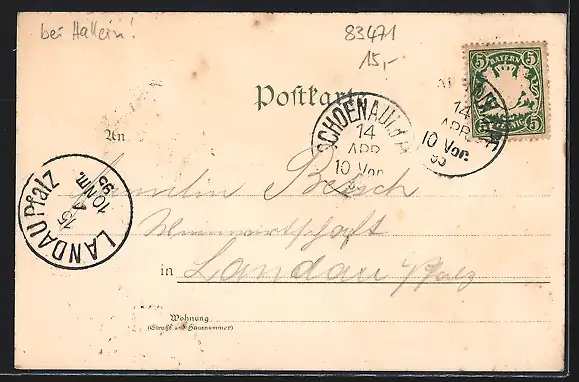 bei Hallein!
83471
15,-
5 BAYERN 5
5 PFENNIG 5
Postkarte
SCHOENAU
14
APR
10 Vor.
14
APR
10 Vor.
95
An
Familie
LANDAU Pfalz
15
A
10 Nm.
95
in Landau Pfalz
Wohnung
(Straße und Hausnummer)